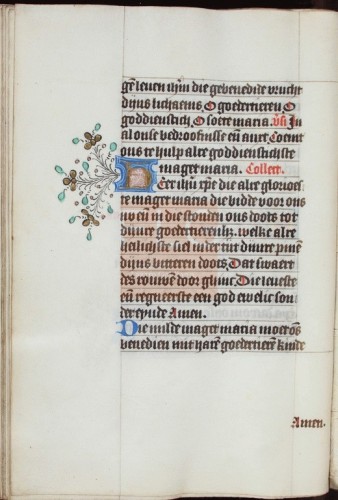 gen leuen ihm die gebenedide vrucht
dijns lichaems. O goedertieren O
goddienstich. O soete maria. vs̄ In
al onse bedroefnisse eñ anxt. Coemt
ons te hulp alre goddienstichste
maget maria. Collect.
Heer ihū xp̄e die alre glorioes
te maget maria die bidde voor ons
nv eñ in die stonden ons doots tot
dijnre goedertierenh. welke alre
heilichste siel inder tijt dijnre pinē
dijns bitteren doots. Dat swaert
des rouwen doorghinc. Die leueste
eñ regneerste een god ewelic son
der eynde Amen.
Die milde maget maria moet ōs
benedien mit haren goedertierē kinde
Amen.